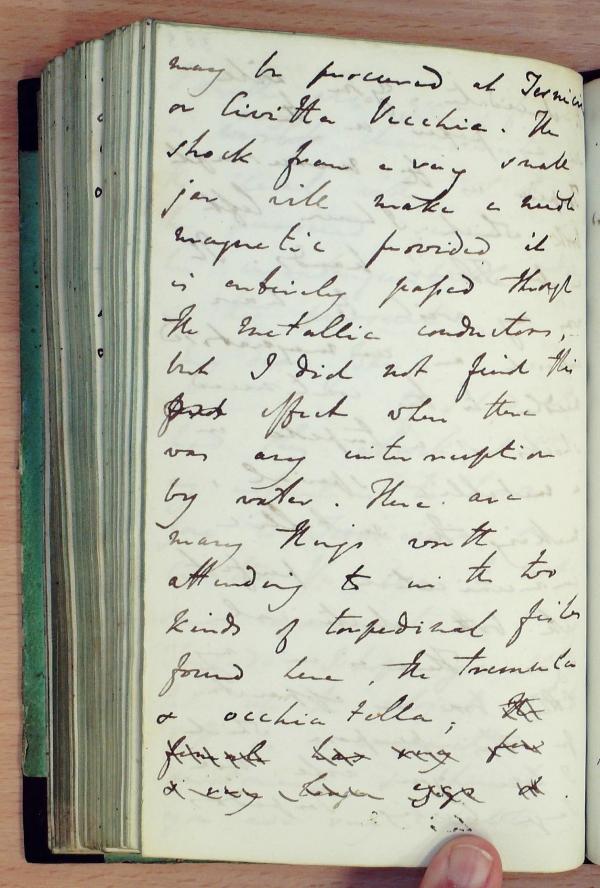 may be procured at
or Civitta Vecchia. The
shock from a very small
jar will make a needle
magnetic provided it
is entirely passed through
the metallic conductors,
but I did not find this
effect when there
was any interruption
by water. There are
many things worth
attending to in the two
kinds of torpedinal fishes
found here, the tremula
& occhiatella; the
female has very few
& very large eggs